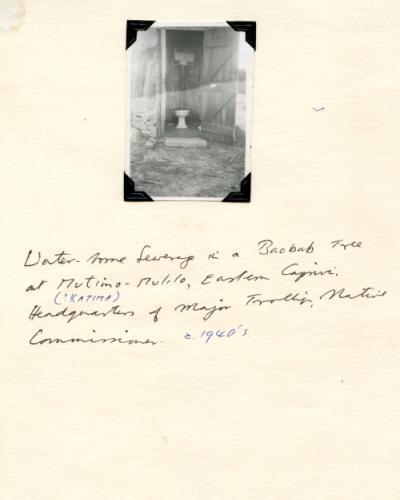 Water-borne Sewerage in a Baobab Tree
at Mutimo-Mulilo, Eastern Caprivi.
(?KATIMA)
Headquarters of Major Trollip, Native
Commissioner. c.1940's.